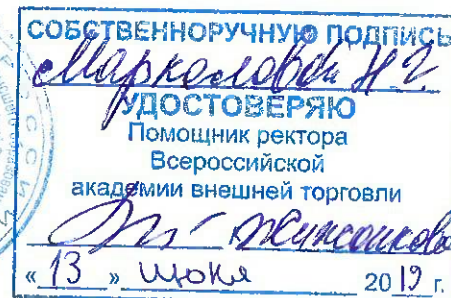 СОБСТВЕННОРУЧНУЮ ПОДПИСЬ
Н.Г.
УДОСТОВЕРЯЮ
Помощник ректора
Всероссийской
академии внешней торговли
« 13 » июня 2019 г.